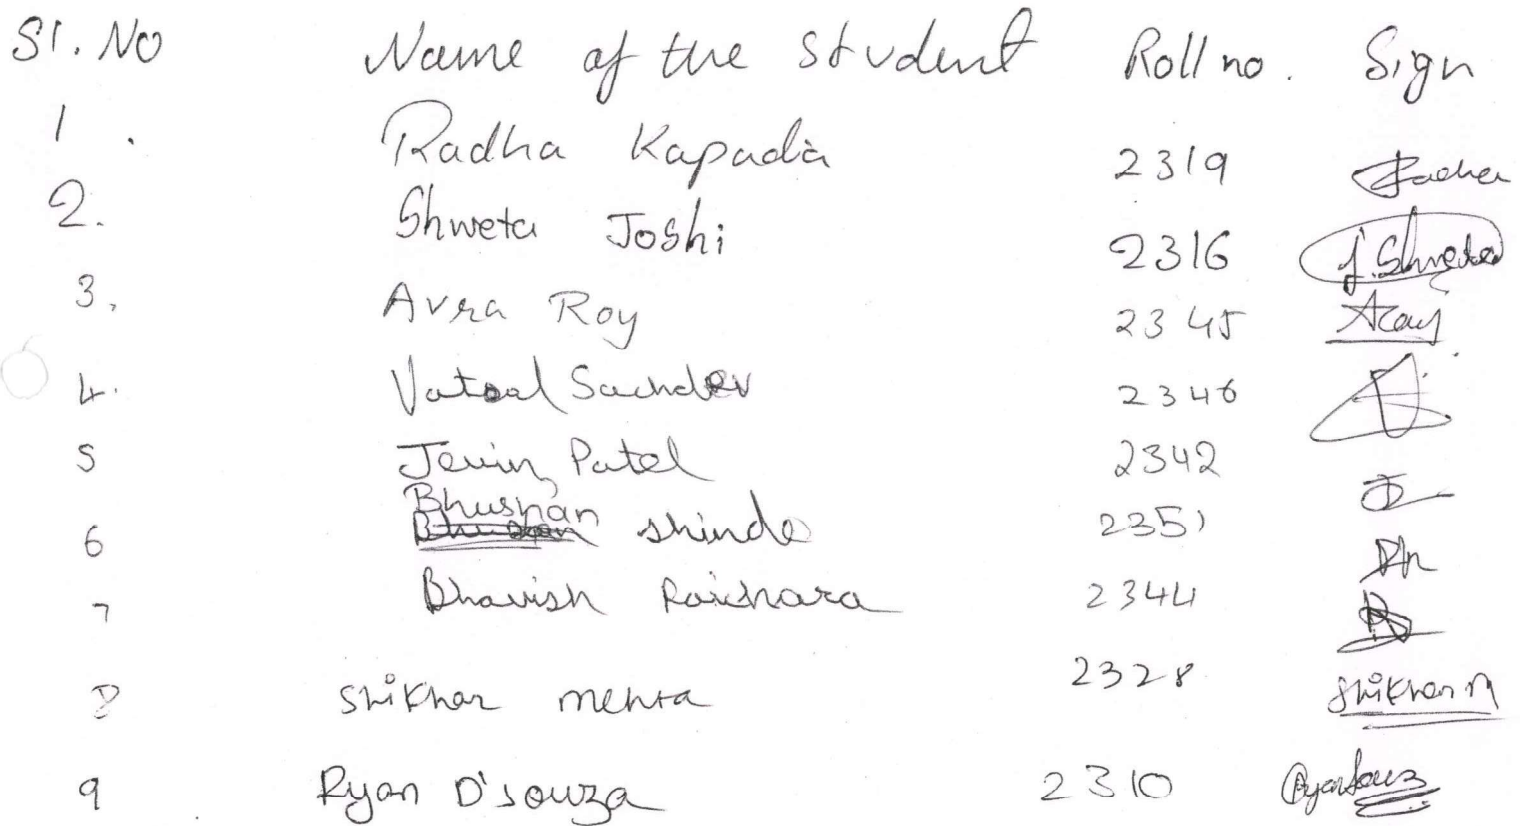 Sl. No Name of the Student Roll no. Sign
1. Radha Kapadia 2319 Radha
2. Shweta Joshi 2316 J. Shweta
3. Avra Roy 2345 ARoy
4. Vatsal Sachdev 2346
5 Jenin Patel 2342
6 Bhushan Shinde 2351
7 Bhavish Raichara 2344
8 Shikhar Mehta 2328 Shikhar M
9 Ryan D'souza 2310 Ryan